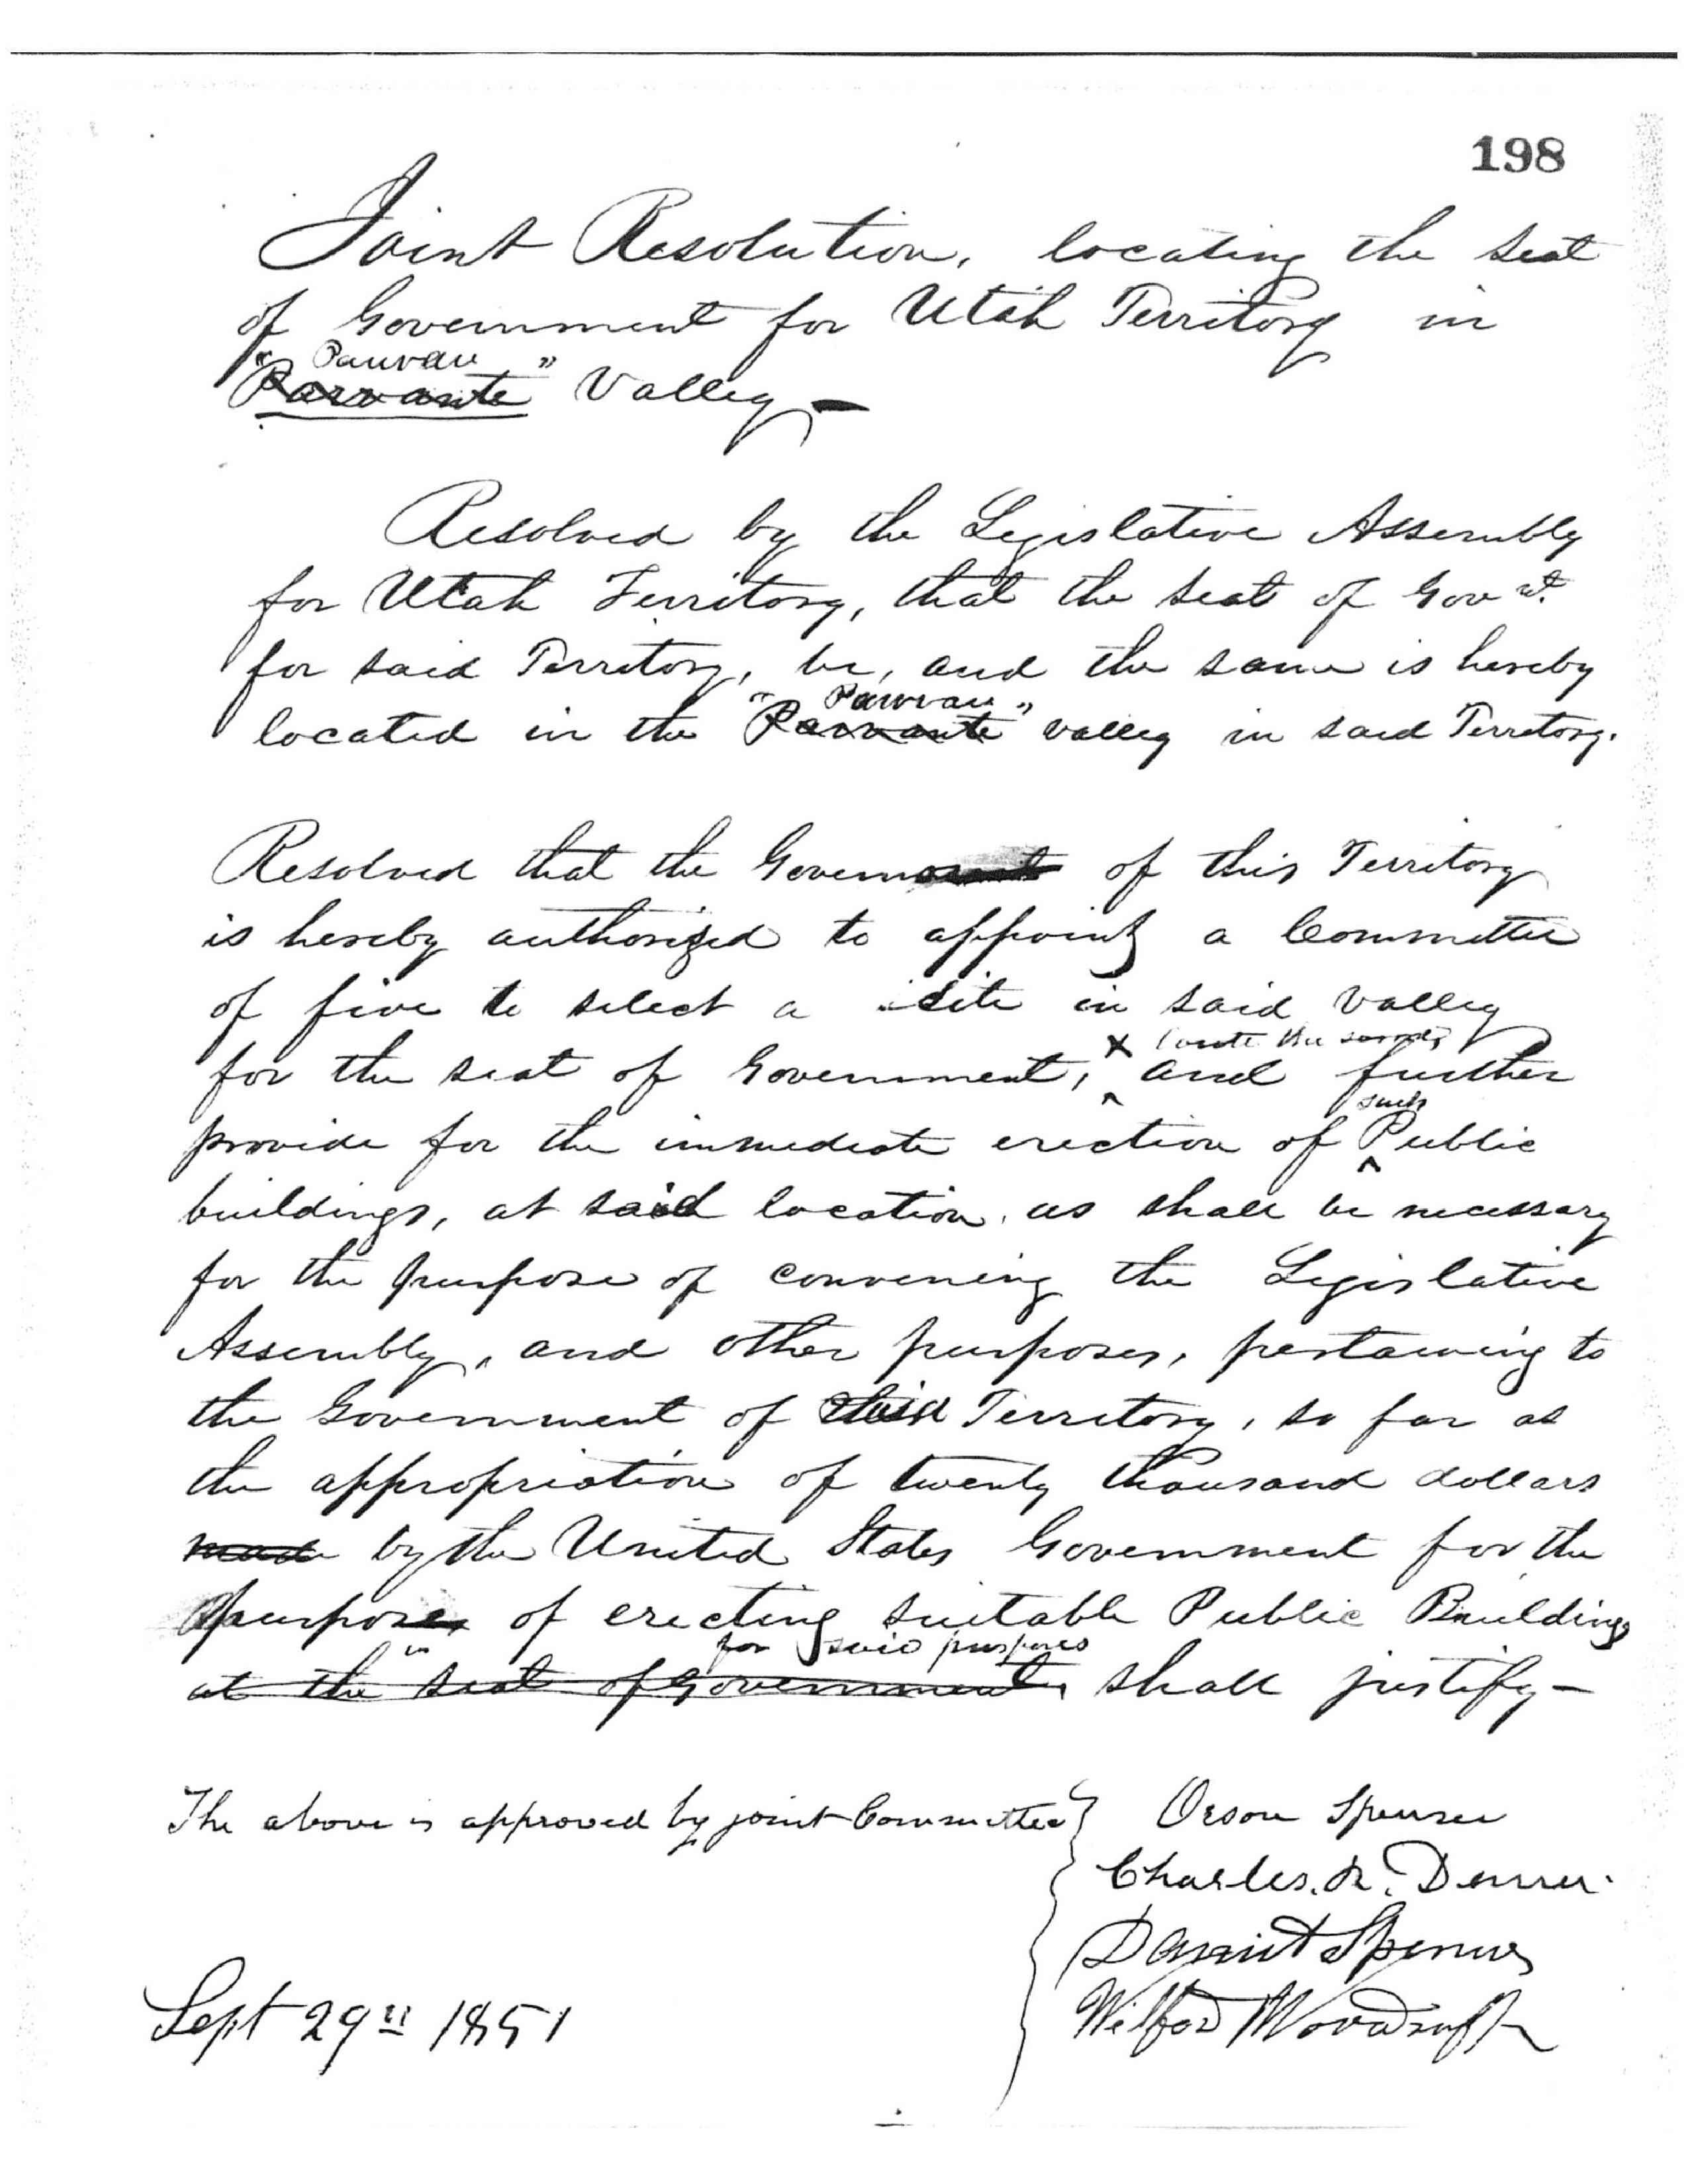 198
Joint Resolution, locating the seat
of Government for Utah Territory in
" Pauvan "
Parvante Valley —
Resolved by the Legislative Assembly
for Utah Territory, that the seat of Gov't.
for said Territory, be, and the same is hereby
" Pauvan "
located in the Parvante valley in said Territory.
Resolved that the Governor of this Territory
is hereby authorized to appoint a Committee
of five to select a site in said valley
x
for the seat of Government, ^ and further
such
provide for the immediate erection of ^ Public
buildings, at said location, as shall be necessary
for the purpose of convening the Legislative
Assembly, and other purposes, pertaining to
the Government of Territory, so far as
the appropriation of twenty thousand dollars
made by the United States Government for the
purpose of erecting suitable Public Buildings
for said purposes
at the seat of Government, shall justify —
The above is approved by joint Committee } Orson Spencer
Charles. R.
Daniel Spencer
Wilford Woodruff
Sept 29" 1851